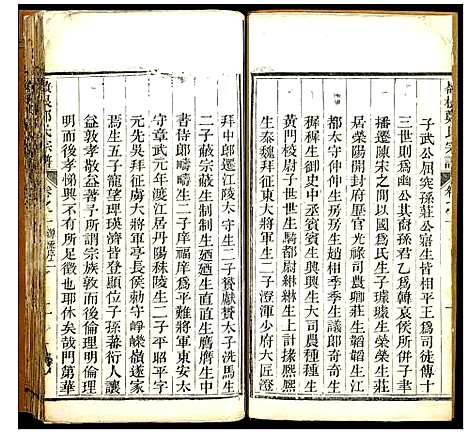 子武公屈突孫莊公寤生皆相平王爲司徒傳十
三世則爲幽公其裔孫君乙爲韓哀侯所併子孫
播遷陳宋之間以國爲氏生子璩璩生榮榮生莊
居滎陽開封府歷官光祿司農卿莊生韜韜生江
都太守仲仲生房房生赾相季季生議郎奇奇生
穉穉生御史中丞賓賓生興興生大司農種種生
黃門校尉子世世生騎都尉綝綝生上計掾熙熙
生泰魏拜征東大將軍生二子渾渾少府大匠澄
拜中郎遷江陵太守生二子賢獻賢太子洗馬生
二子毅宗毅生制制生廼廼生直直生膺膺生中
書侍郎疇疇生二子庠福庠爲平難將軍東安太
守章武元年渡江居丹陽秣陵生二子平昭平字
元先吳拜征虜大將軍亭長侯勅守崢嶸嶺遂家
焉生五子龍望理瑛濟皆登顯位子孫蕃衍人讓
益敦孝敬益著予所謂宗族敦而後倫理明倫理
明而後孝悌興不於此足徵也耶休矣哉門第華